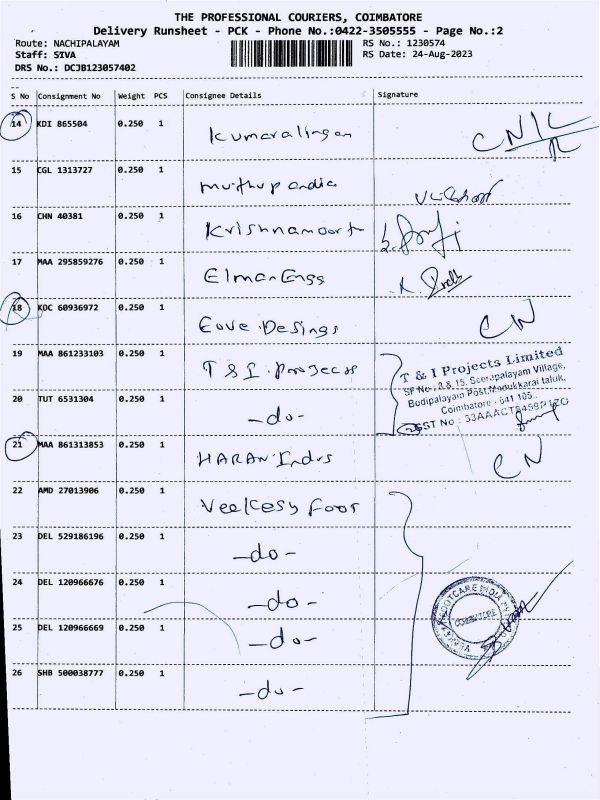 THE PROFESSIONAL COURIERS, COIMBATORE
Delivery Runsheet - PCK - Phone No.:0422-3505555 - Page No.:2
Route: NACHIPALAYAM RS No.: 1230574
Staff: SIVA RS Date: 24-Aug-2023
DRS No.: DCJB123057402
S No Consignment No Weight PCS Consignee Details Signature
14 KDI 865504 0.250 1 Kumaralingam CN
15 CGL 1313727 0.250 1 Muthupandia
16 CHN 40381 0.250 1 Krishnamoort
17 MAA 295859276 0.250 1 Elmar Engg
18 KOC 60936972 0.250 1 Eove Desings CN
19 MAA 861233103 0.250 1 T & I. Projects
T & I Projects Limited
Village,
Bodipalayam Post, Madukkarai taluk,
20 TUT 6531304 0.250 1 -do-
Coimbatore - 641 105.
GST No :
21 MAA 861313853 0.250 1 HARAN Indus CN
22 AMD 27013906 0.250 1 Veekesy Foot
23 DEL 529186196 0.250 1 -do-
24 DEL 120966676 0.250 1 -do-
COIMBATORE
25 DEL 120966669 0.250 1 -do-
26 SHB 500038777 0.250 1 -do-